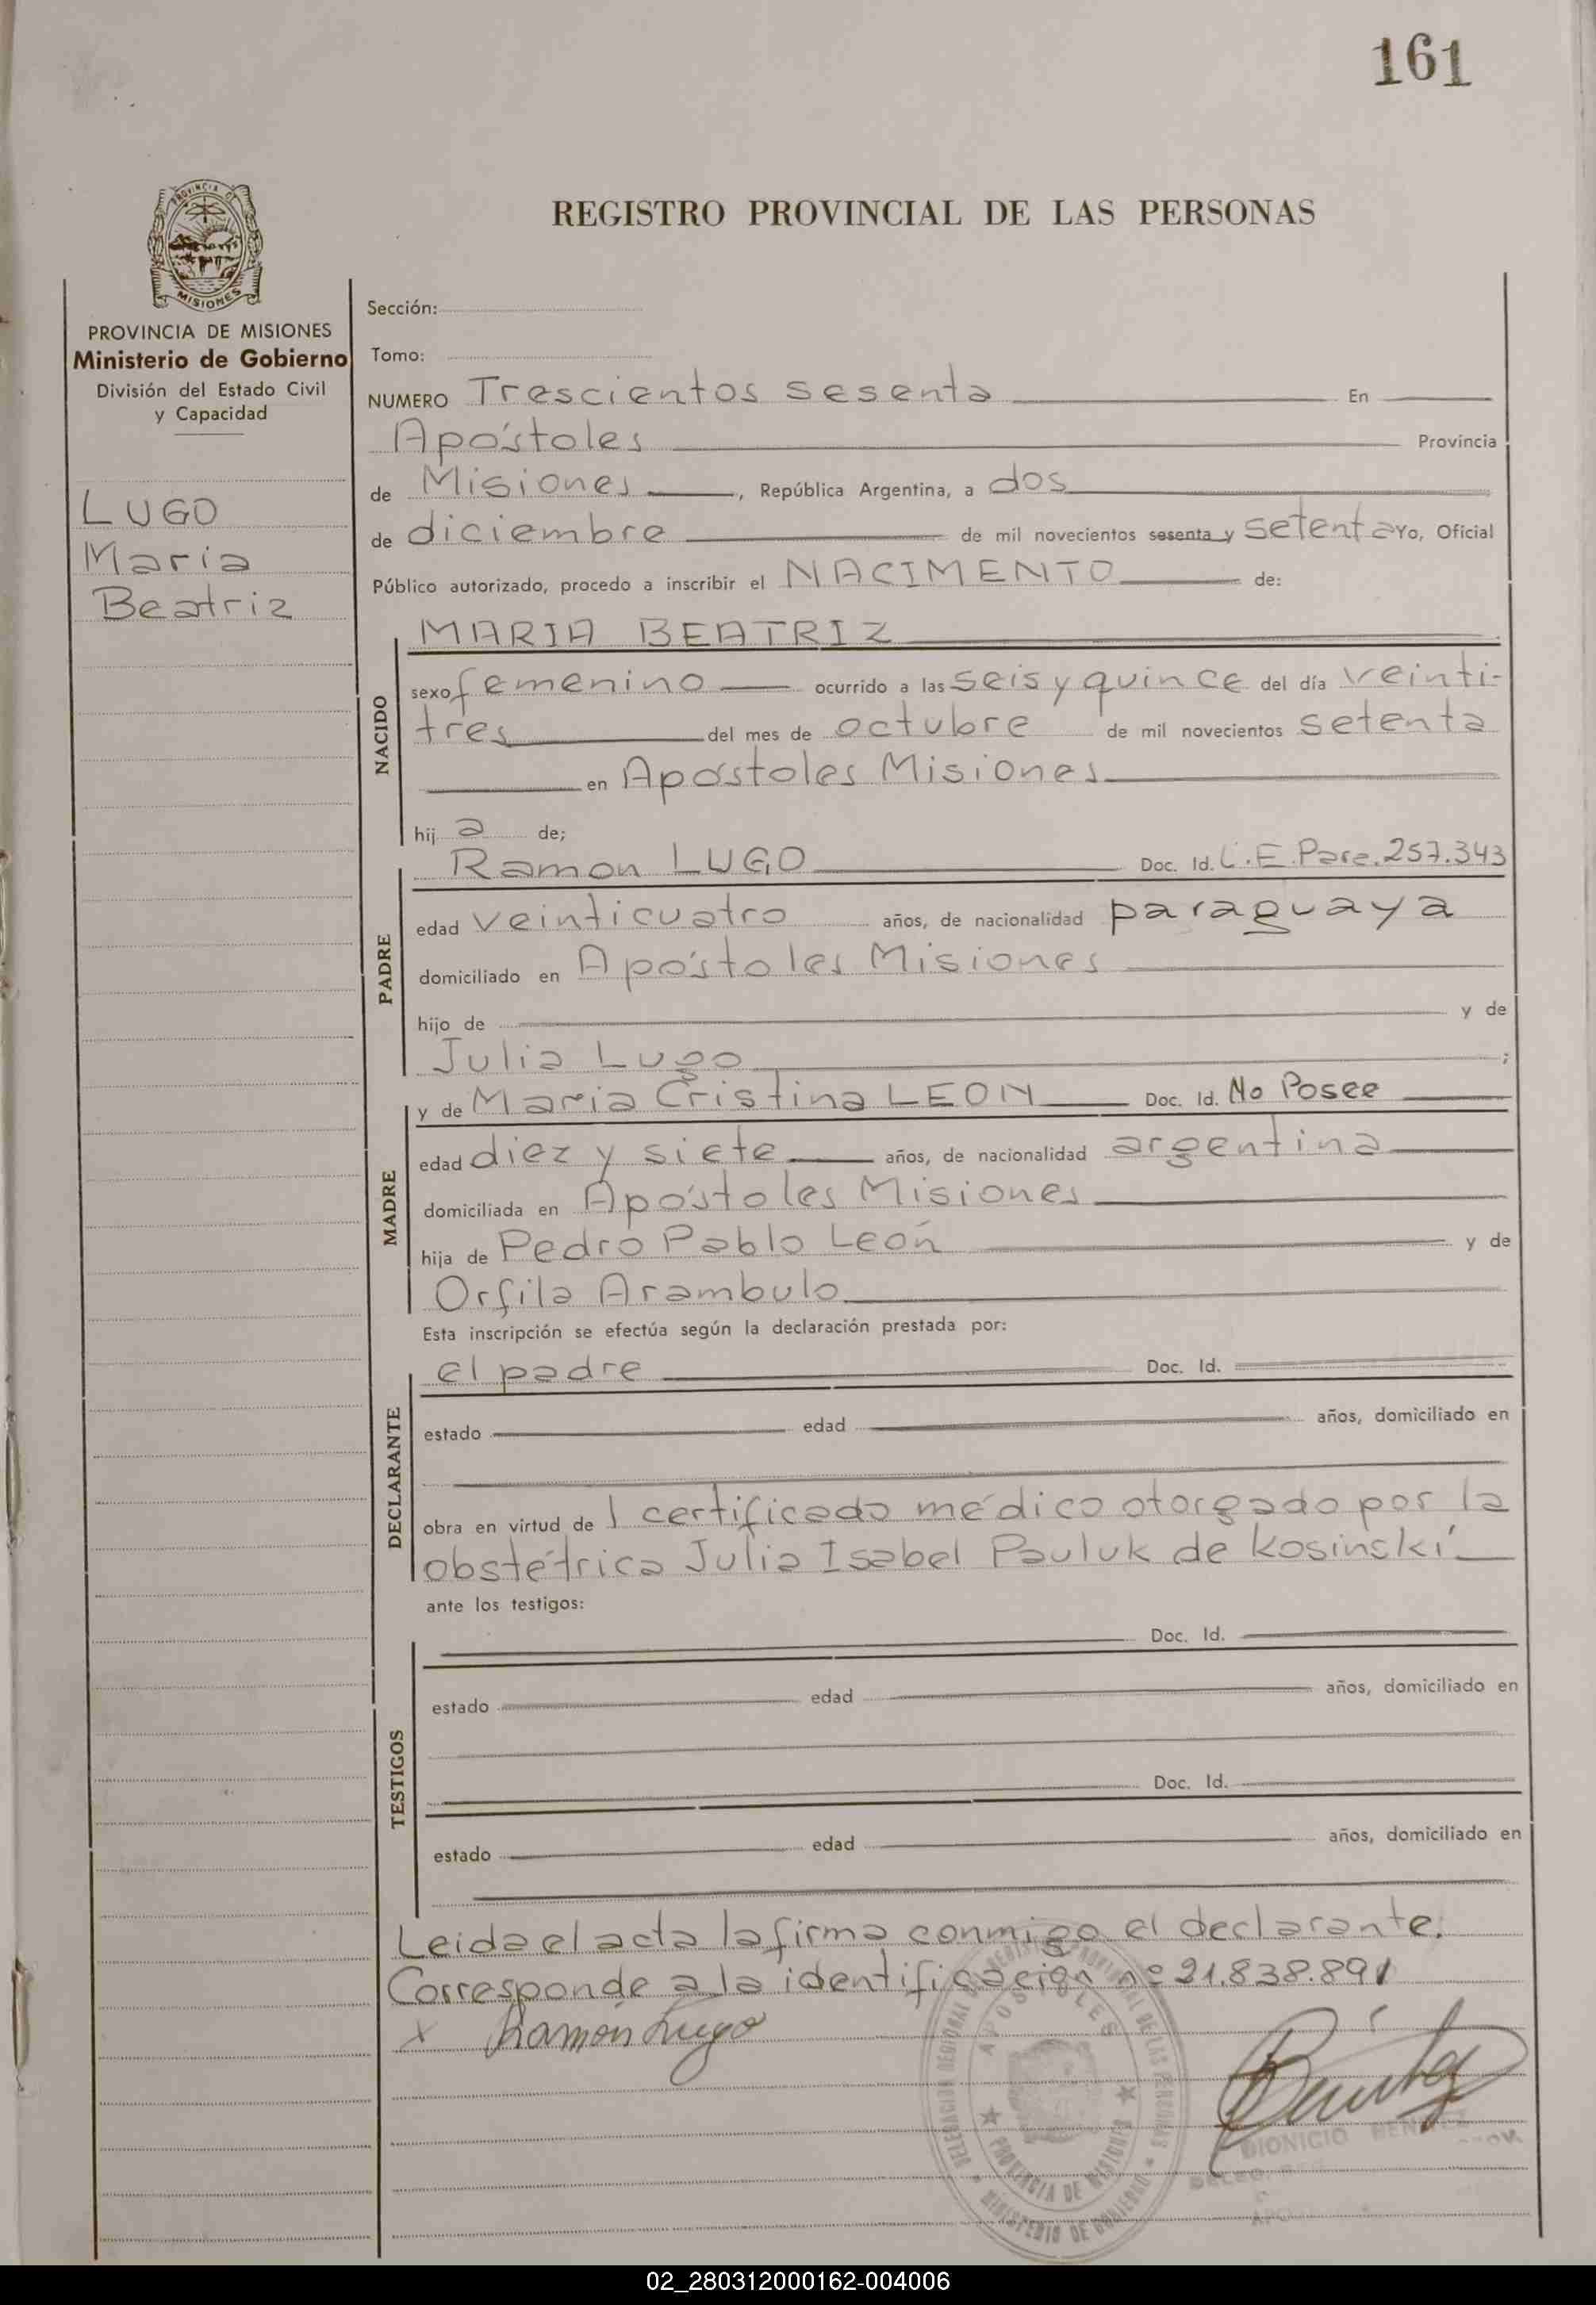 161
PROVINCIA DE
MISIONES
REGISTRO PROVINCIAL DE LAS PERSONAS
PROVINCIA DE MISIONES
Ministerio de Gobierno
División del Estado Civil
y Capacidad
LUGO
Maria
Beatriz
Sección:
Tomo:
NUMERO Trescientos sesenta En
Apóstoles Provincia
de Misiones, República Argentina, a dos
de diciembre de mil novecientos sesenta y setenta Yo, Oficial
Público autorizado, procedo a inscribir el NACIMENTO de:
NACIDO
MARIA BEATRIZ
sexo femenino ocurrido a las seis y quince del día veinti-
tres del mes de octubre de mil novecientos setenta
en Apóstoles Misiones
hij a de;
PADRE
Ramon LUGO Doc. Id. C.E. Para. 257.343
edad veinticuatro años, de nacionalidad paraguaya
domiciliado en Apóstoles Misiones
hijo de y de
Julia Lugo ;
MADRE
y de Maria Cristina LEON Doc. Id. No Posee
edad diez y siete años, de nacionalidad argentina
domiciliada en Apóstoles Misiones
hija de Pedro Pablo León y de
Orfila Arambulo
Esta inscripción se efectúa según la declaración prestada por:
DECLARANTE
el padre Doc. Id.
estado edad años, domiciliado en
obra en virtud de l certificado médico otorgado por la
obstétrica Julia Isabel Pauluk de Kosinski
ante los testigos:
TESTIGOS
Doc. Id.
estado edad años, domiciliado en
Doc. Id.
estado edad años, domiciliado en
Leida el acta la firma conmigo el declarante.
Corresponde a la identificación nº 21.838.891
x Ramón Lugo
DELEGACION REGIONAL DEL REGISTRO PROVINCIAL DE LAS PERSONAS
APOSTOLES
PROVINCIA DE MISIONES
MINISTERIO DE GOBIERNO
Benitez
DIONICIO BENITEZ
02_280312000162-004006